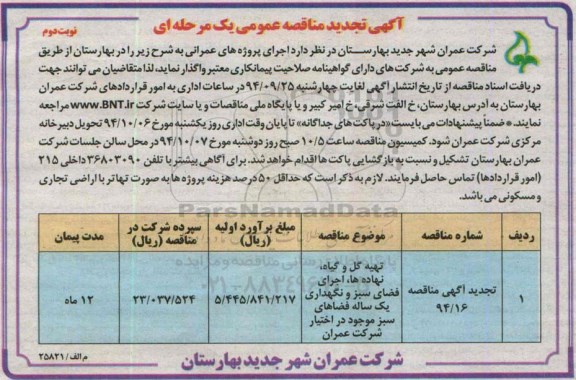 آگهی تجدید مناقصه عمومی یک مرحله ای
نوبت دوم
شرکت عمران شهر جدید بهارستان در نظر دارد اجرای پروژه های عمرانی به شرح زیر را در بهارستان از طریق
مناقصه عمومی به شرکت های دارای گواهینامه صلاحیت پیمانکاری معتبر واگذار نماید، لذا متقاضیان می توانند جهت
دریافت اسناد مناقصه از تاریخ انتشار آگهی لغایت چهارشنبه ۹۴/۰۹/۲۵ در ساعات اداری به امور قراردادهای شرکت عمران
بهارستان به آدرس بهارستان، خ الفت شرقی، خ امیر کبیر و یا پایگاه ملی مناقصات و یا سایت شرکت www.BNT.ir مراجعه
نمایند. * ضمناً پیشنهادات می بایست «در پاکت های جداگانه» تا پایان وقت اداری روز یکشنبه مورخ ۹۴/۱۰/۰۶ تحویل دبیرخانه
مرکزی شرکت عمران شود. کمیسیون مناقصه ساعت ۱۰/۵ صبح روز دوشنبه مورخ ۹۴/۱۰/۰۷ در محل سالن جلسات شرکت
عمران بهارستان تشکیل و نسبت به بازگشایی پاکت ها اقدام خواهد شد. برای آگاهی بیشتر با تلفن ۳۶۸۰۳۰۹۰ داخلی ۲۱۵
(امور قراردادها) تماس حاصل فرمایند. لازم به ذکر است که حداقل ۵۰ درصد هزینه پروژه ها به صورت تهاتر با اراضی تجاری
و مسکونی می باشد.
ParsNamadData
ردیف شماره مناقصه موضوع مناقصه مبلغ برآورد اولیه (ریال) سپرده شرکت در مناقصه (ریال) مدت پیمان
۱ تجدید آگهی مناقصه ۹۴/۱۶ تهیه گل و گیاه، نهاده ها، اجرای فضای سبز و نگهداری یک ساله فضاهای سبز موجود در اختیار شرکت عمران ۵/۴۴۵/۸۴۱/۲۱۷ ۲۳/۰۳۷/۵۲۴ ۱۲ ماه
شرکت عمران شهر جدید بهارستان
م الف / ۲۵۸۲۱